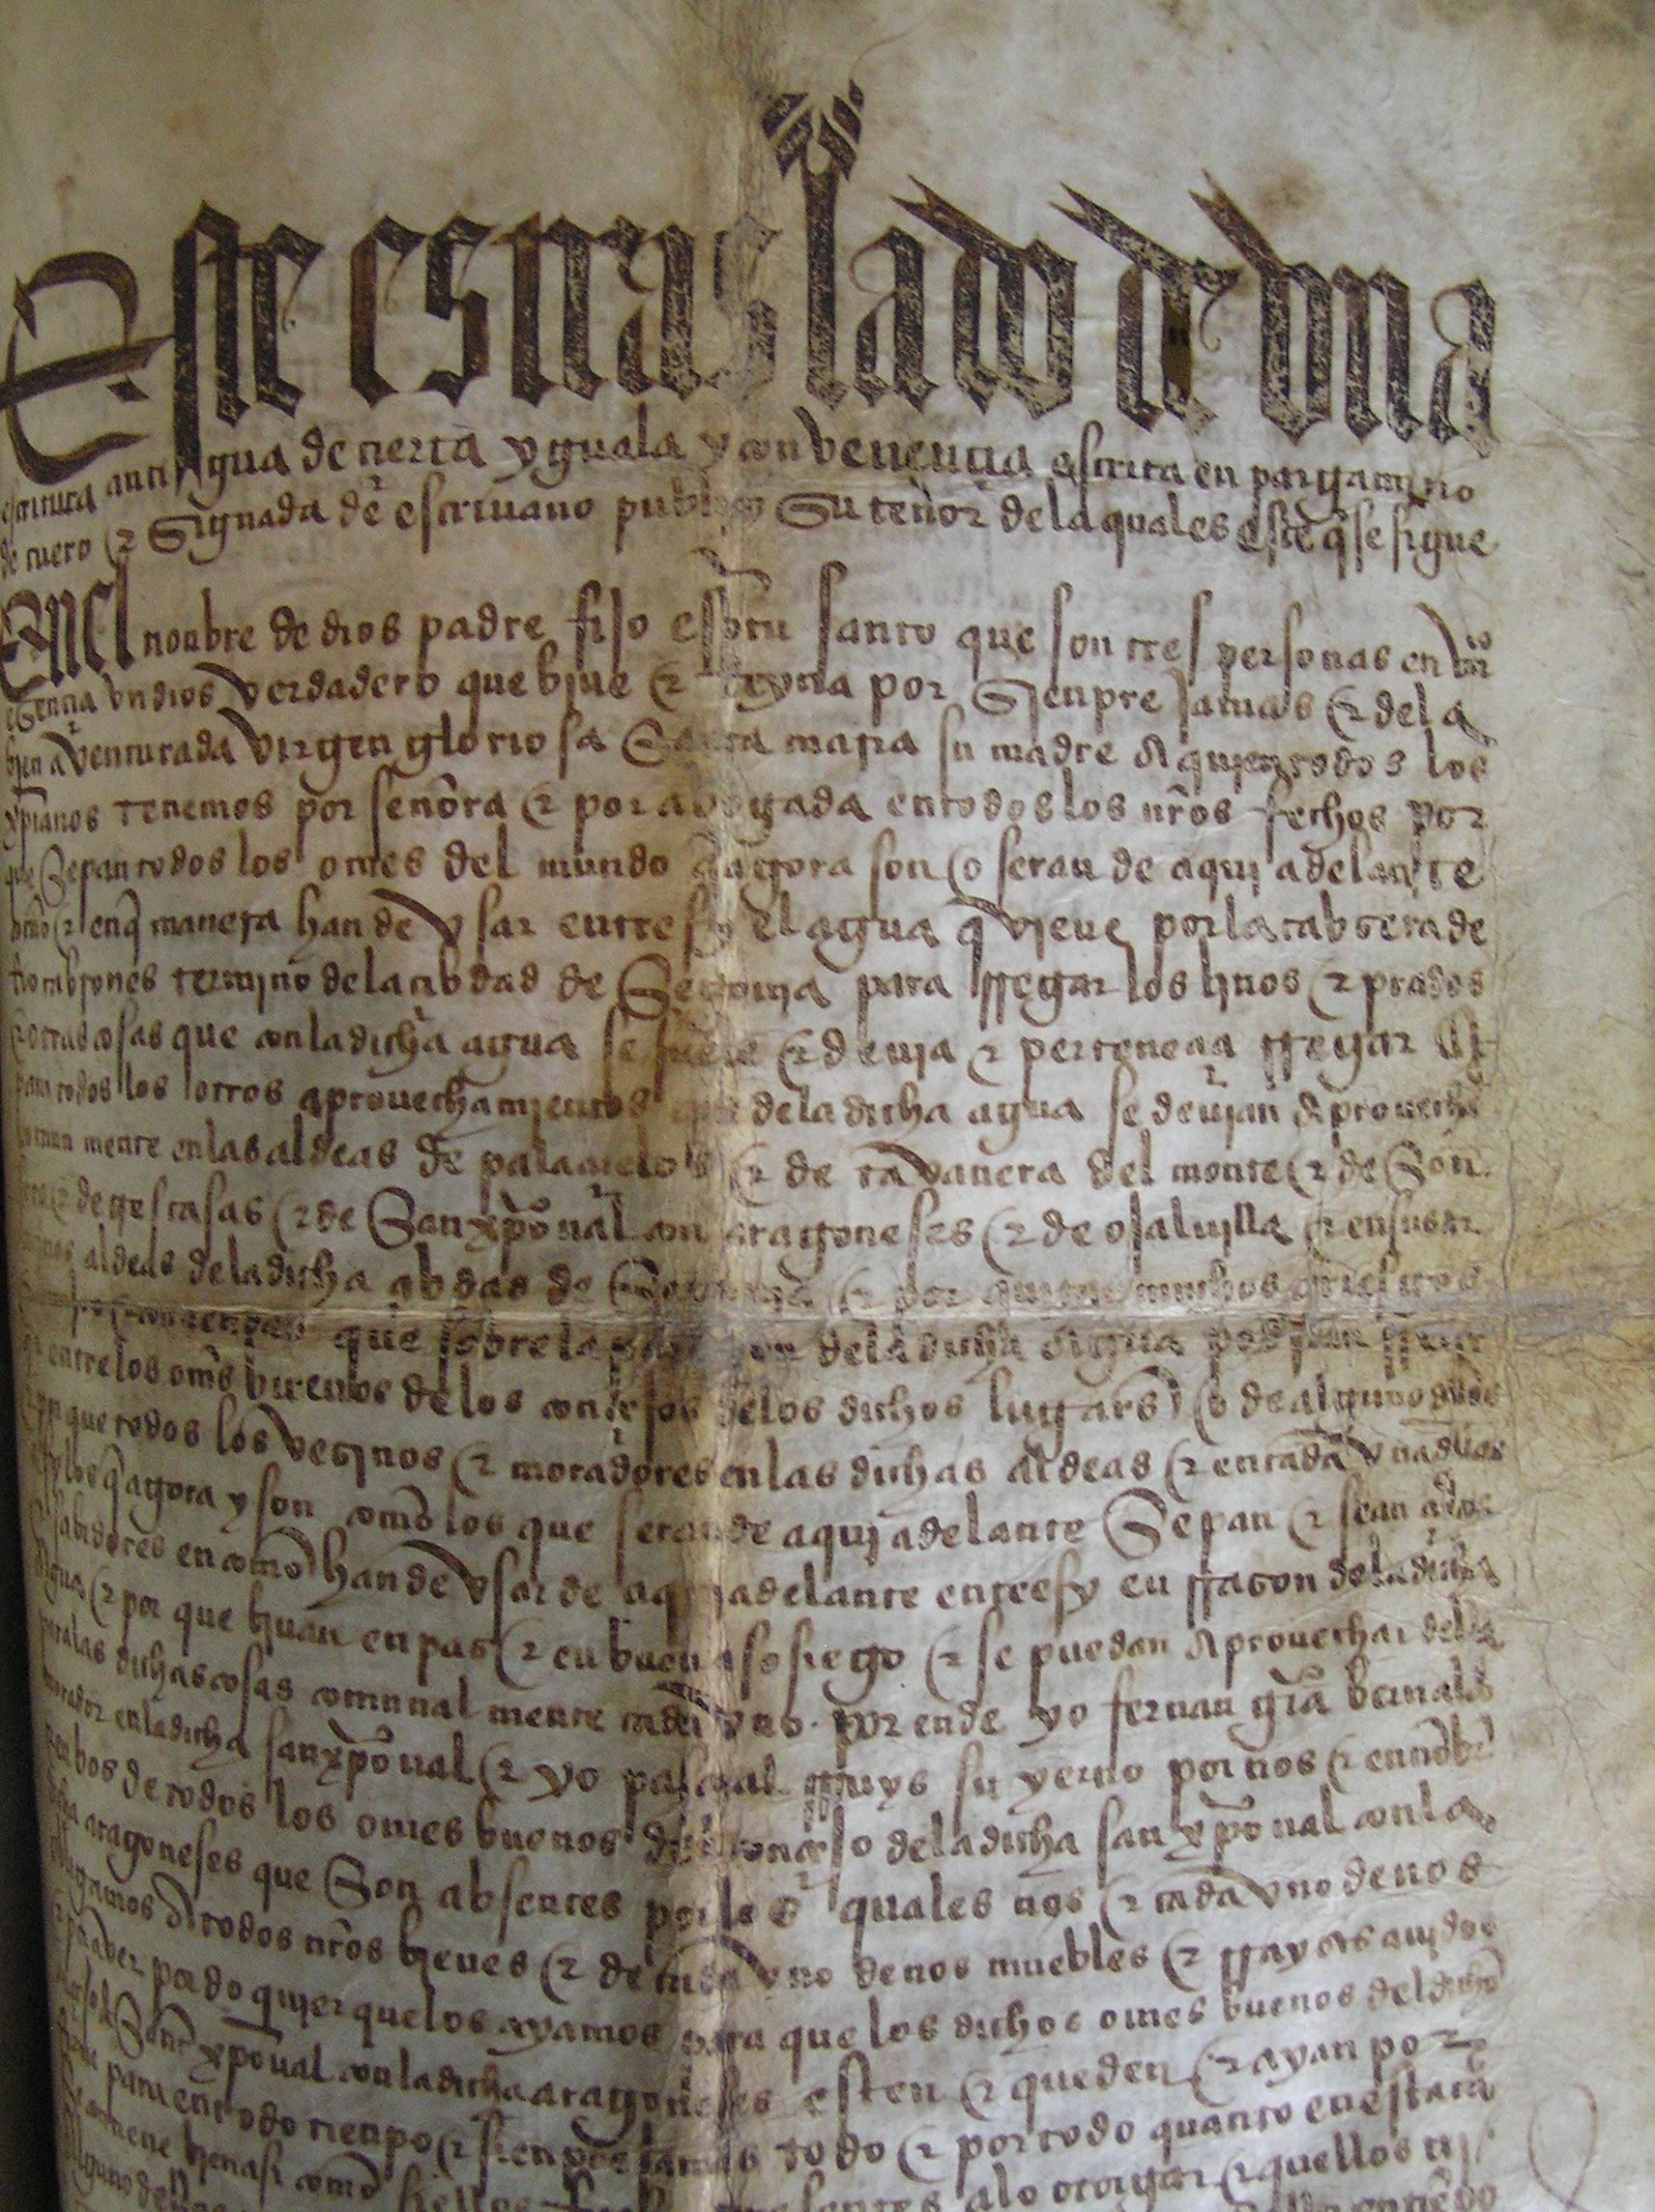 Este es traslado de vna
escritura antigua de çierta yguala y convenençia escrita en pargamino
de cuero & Signada de escriuano publico Su tenor dela qual es este q̃ se sigue
Enel nonbre de dios padre fijo e spũ santo que son tres personas en vna
esençia vn dios verdadero que bjue & rreyna por Sienpre jamas & dela
bien aventurada virgen gloriosa Santa maria su madre A quien todos los
xp̃ianos tenemos por señora & por abogada en todos los nr̃os fechos por
que Sepan todos los omes del mundo q̃ agora son o seran de aqui adelante
commo & en q̃ manera han de vsar entre sy el agua q̃ vjene por la cabçera de
termjno dela çibdad de Segouja para rregar los linos & prados
& otras cosas que conla dicha agua se suele & deuja & perteneçia rregar
para todos los otros aprouechamjentos que dela dicha agua se deujan Aprouechar
comun mente enlas aldeas de palaçuelos & de tavanera del monte & de Son
soto & de trescasas & de San xp̃oual con aragoneses & de ojaluilla
aldeas dela dicha çibdad de Segouja & por quitar muchos
que sobrela dela dicha Agua
entrelos oms̃ buenos delos conçejos delos dichos lugars̃ o de alguno dellos
que todos los vezjnos & moradores enlas dichas aldeas & en cada vna dellas
los q̃ agora y son commo los que seran de aqui adelante Sepan & sean
sabidores en commo han de vsar de aqui adelante entre sy en rrazon dela dicha
Agua & por que bjuan en paz & en buen sosiego & se puedan Aprouechar della
para las dichas cosas comunal mente cada vno. por ende yo fernan grã bernalds
morador enla dicha sanxp̃oual & yo pasqual rruys su yerno por nos & en nonbre
de todos los omes buenos del conçejo dela dicha san xp̃oual conla
dicha aragoneses que Son absentes por los quales nos & cada vno de nos
obligamos A todos nr̃os bjenes & de cada vno de nos muebles & rrayzes aujdos
& por aver por do quier quelos ayamos para que los dichos omes buenos del dicho
conçejo de Sant xp̃oual conla dicha aragoneses esten & queden & ayan por
firme para en todo tienpo & sienpre jamas todo & por todo quanto en esta carta
se contiene bien asi commo & aquellos